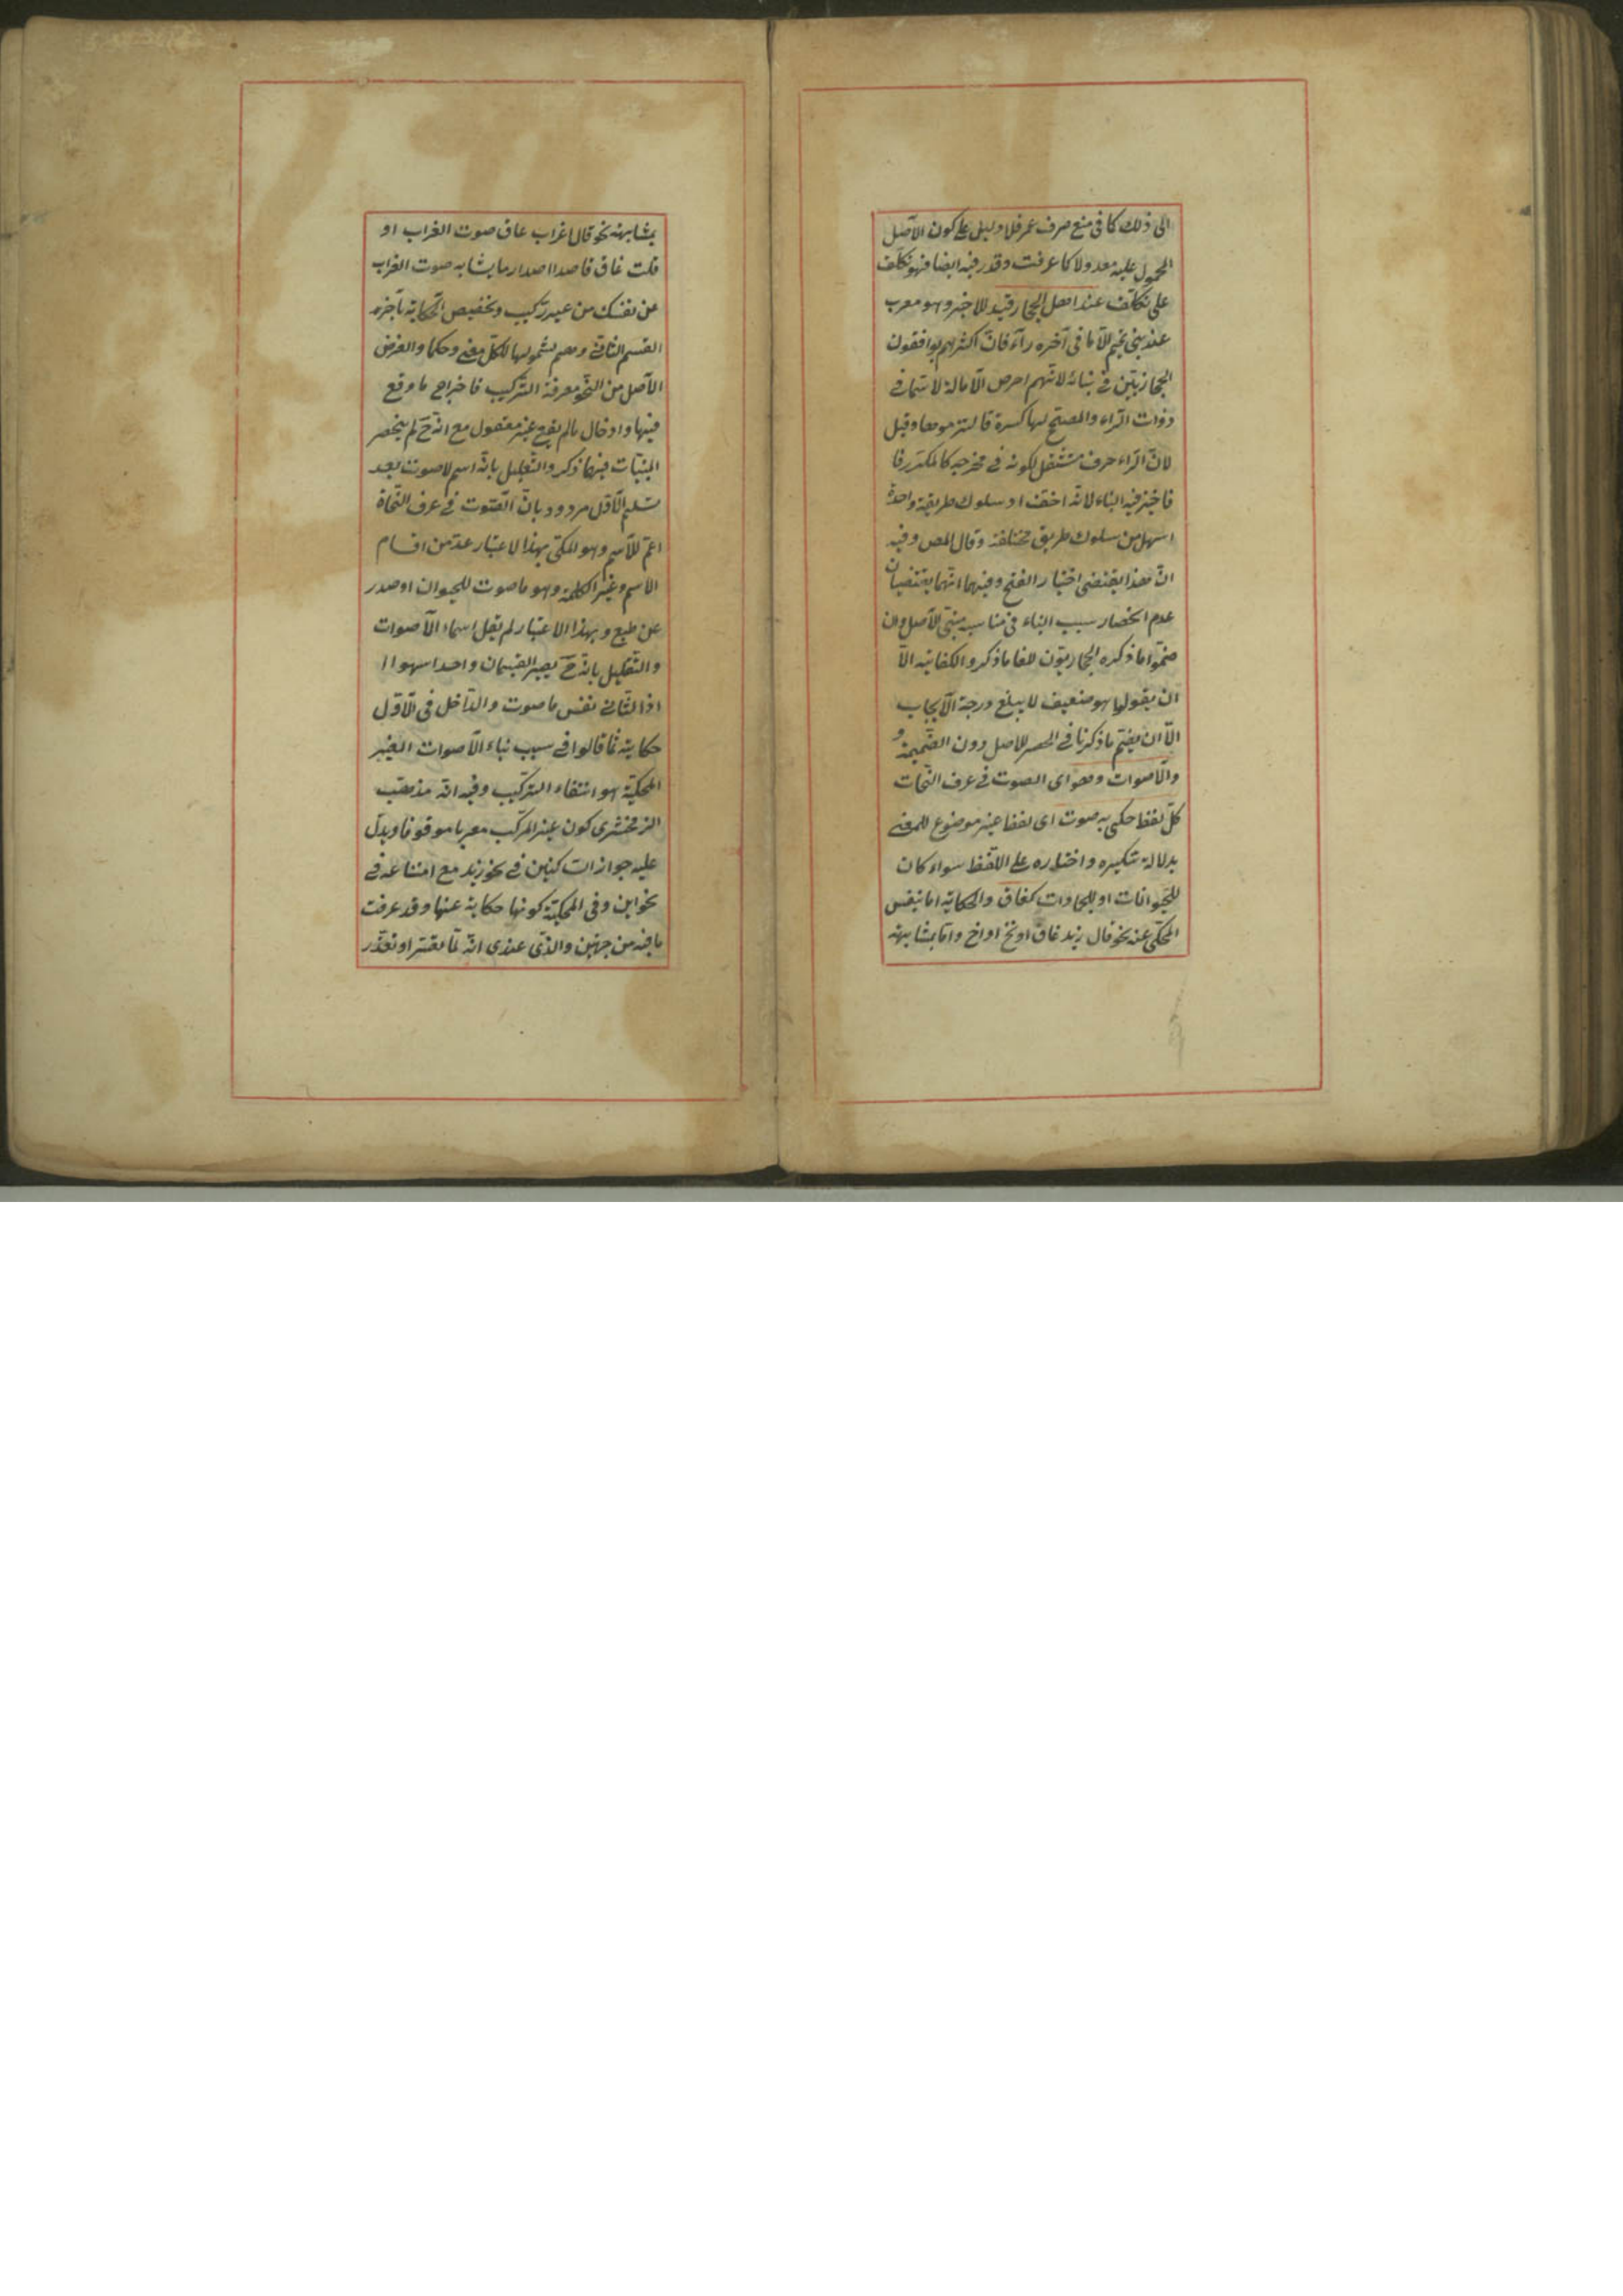 الى ذلك كما فى منع صرف عمر فلا دليل على كون الاصل
المحمول عليه معدولا كما عرفت وقدر فيه ايضا فهو تكلف
على تكلف عند اهل الحجاز قيد للاخير وهو معرب
عند بنى تميم الا ما فى آخره راء فان اكثرهم يوافقون
الحجازيين فى بنائه لانهم احرص الامالة لا سيما فى
ذوات الراء والمصحح لها كسرة وقيل
لان الراء حرف مستثقل لكونه فى مخرجه كالمكرر فا
فاختير فيه البناء لانه اخف اذ سلوك طريقة واحدة
اسهل من سلوك طريق مختلفة وقال المص وفيه
ان هذا يقتضى اختيار الفتح وفيهما انهما يقتضيان
عدم انحصار سبب البناء فى مناسبة مبنى الاصل وان
ضموا ما ذكره الحجازيون للغا ما ذكروا لكفايته الا
ان يقولوا هو ضعيف لا يبلغ درجة الايجاب
الا ان يضم ما ذكرنا فى الحصر للاصل دون الضميمة و
والاصوات وهو اى الصوت فى عرف النحات
كل لفظ حكى به صوت اى لفظا غير موضوع للمعنى
بدلالة تنكيره واختياره على اللفظ سواء كان
للحيوانات او للجمادات كغاق والحكاية اما بنفس
المحكى عنه نحو قال زيد غاق او نخ او اخ واما بمشابهه
بمشابهه نحو قال غراب غاق صوت الغراب او
قلت غاق قاصدا اصدار ما يشابه صوت الغراب
عن نفسك من غير تركيب وتخصيص الحكاية
القسم الثانى وهم لشمولها للكل معنى وحكما والغرض
الاصل من النحو معرفة التركيب فاخراج ما وقع
فيها وادخال ما لم يقع غير معقول مع انه ح لم ينحصر
المبنيات فيما ذكر والتعليل بانه اسم لا صوت بعد
تسليم الاول مردود بان الصوت فى عرف النحاة
اعم للاسم وهو المحكى بهذا الاعتبار عد من اقسام
الاسم وغير الكلمة وهو ما صوت للحيوان او صدر
عن طبع وبهذا الاعتبار لم يقل اسماء الاصوات
والتعليل بانه ح يصير القسمان واحدا سهو اا
اذ الثانى نفس ما صوت والداخل فى الاول
حكايته ثما قالوا فى سبب بناء الاصوات الغير
المحكية هو انتفاء التركيب وفيه انه مذهب
الزمخشرى كون غير المركب معربا موقوفا ويدل
عليه جواز الساكنين فى نحو زيد مع امتناعه فى
نحو اين وفى المحكية كونها حكاية عنها وقد عرفت
ما فيه من جهتين والذى عندى انه لما تعسر او تعذر